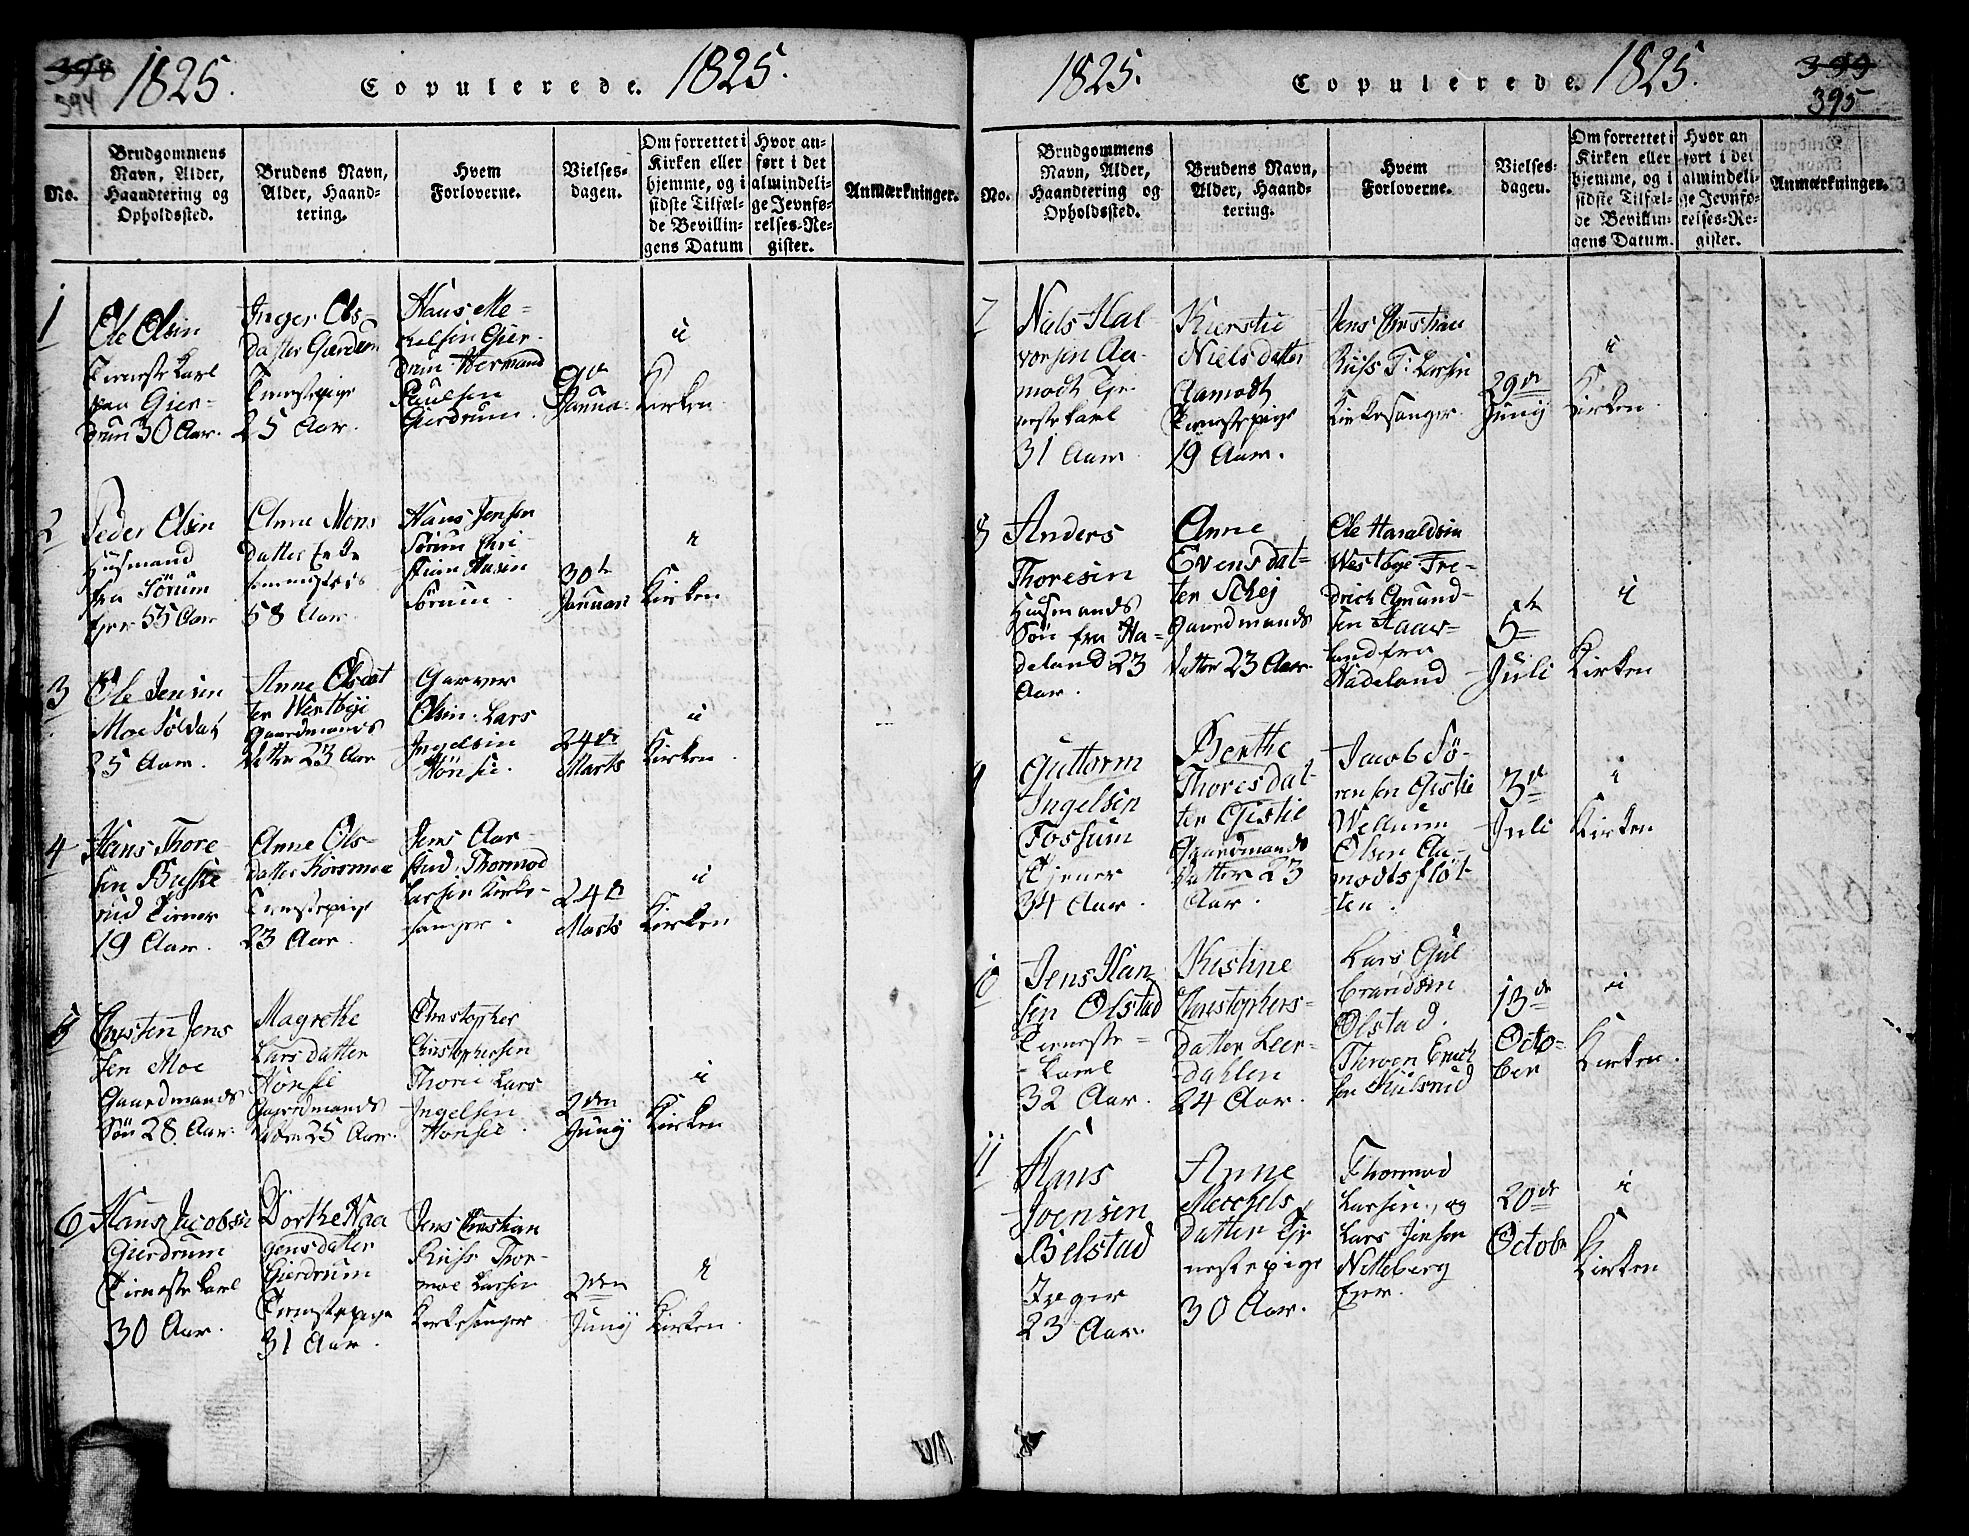 398
394
1825.
Copulerede.
1825.
No.
Brudgommens
Navn, Alder,
Haandtering og
Opholdssted.
Brudens Navn,
Alder, Haand-
tering.
Hvem
Forloverne.
Vielses-
dagen.
Om forrettet i
Kirken eller
hjemme, og i
sidste Tilfæl-
de Bevillin-
gens Datum
Hvor an-
ført i det
almindeli-
ge Jevnfø-
relses-Re-
gister.
Anmærkninger.
1
Ole Olsen
Tieneste Karl
paa Gier-
drum 30 Aar.
Inger Ols-
datter Gierdrum
Tienestepige
25 Aar.
Hans
Gier-
drum Hermand
Paulsen
Gierdrum.
9de
Janua.
i
Kirken
2
Peder Olsen
Husmand
fra Sörum
55 Aar
Anne Mons
datter Enke
58 Aar.
Hans Jensen
Sörum
Sörum.
30te
Januari
i
Kirken
3
Ole Jensen
Moe Soldat
25 Aar.
Anne Olsdat
ter Westbye
Gaardmands
datter 23 Aar
Olsen. Lars
Ingelsen
Hönsie.
24de
Marts
i
Kirken
4
Hans Thore-
sen Buske-
rud Tiener
19 Aar.
Anne Ols-
datter Korsmoe
Tienestepige
23 Aar.
Jens Aar-
Thormod
Larsen Kirke-
sanger.
24de
Marts
i
Kirken
5
Christen Jens
sen Moe
Gaardmands
Sön 28. Aar.
Magrethe
Lars datter
Hönsie
Gaardmands
datter 25 Aar.
Christopher
Christophersen
Lars
Ingelsen
Hönsie.
2den
Junÿ
i
Kirken
6
Hans Jacobsen
Gierdrum
Tieneste Karl
30 Aar.
Dorthe Haa
gensdatter
Gierdrum
Tienestepige
31 Aar.
Jens Christian
Russ Thor-
moe Larsen
Kirkesanger
2den
Junÿ
i
Kirken.
1825.
Copulerede.
1825.
399
395
No.
Brudgommens
Navn, Alder,
Haandtering og
Opholdssted.
Brudens Navn,
Alder, Haand-
tering.
Hvem
Forloverne.
Vielses-
dagen.
Om forrettet i
Kirken eller
hjemme, og i
sidste Tilfæl-
de Bevillin-
gens Datum.
Hvor an
ført i det
almindeli-
ge Jevnfø-
relses-Re-
gister.
Anmærkninger.
7
Niels Hal-
vorsen Aa-
modt Tje-
nestekarl
31 Aar
Kierstie
Nielsdatter
Aamodt
Tienestepige
19 Aar.
Jens Christian
Russ T: Larsen
Kirkesanger.
29de
Junÿ
i
Kirken.
8
Anders
Thoresen
Husmands
Sön fra Ha-
deland 23
Aar.
Anne
Evensdat-
ter Schej
Gaardmands
datter 23 Aar.
Ole Haraldsen
Westbye Fre-
drich Amund-
sen Haar-
land fra
Hadeland
5te
Juli
i
Kirken
9
Guttorm
Ingelsen
Fossum
Tjener
34 Aar.
Berthe
Thoresdat-
ter Gistie
Gaardmands
datter 23
Aar.
Jacob Sö-
rensen Gistie
Wellum
Olsen Aa-
modtsflöt-
ten.
3de
Juli
i
Kirken
10
Jens Han
sen Ølstad
Tieneste-
Karl
32 Aar.
Kistine
Christophers-
datter Leer-
dahlen
24 Aar.
Lars Gul
brandsen
Ølstad.
Thoven Erich
sen Kulsrud
13de
Octo-
ber
i
Kirken.
11
Hans
Ivensen
Belstad
Jæger
23 Aar.
Anne
Mechels
datter Tje
nestepige
30 Aar.
Thormod
Larsen, og
Lars Jensen
Nitteberg
Eier.
20de
Octobr
i
Kirken